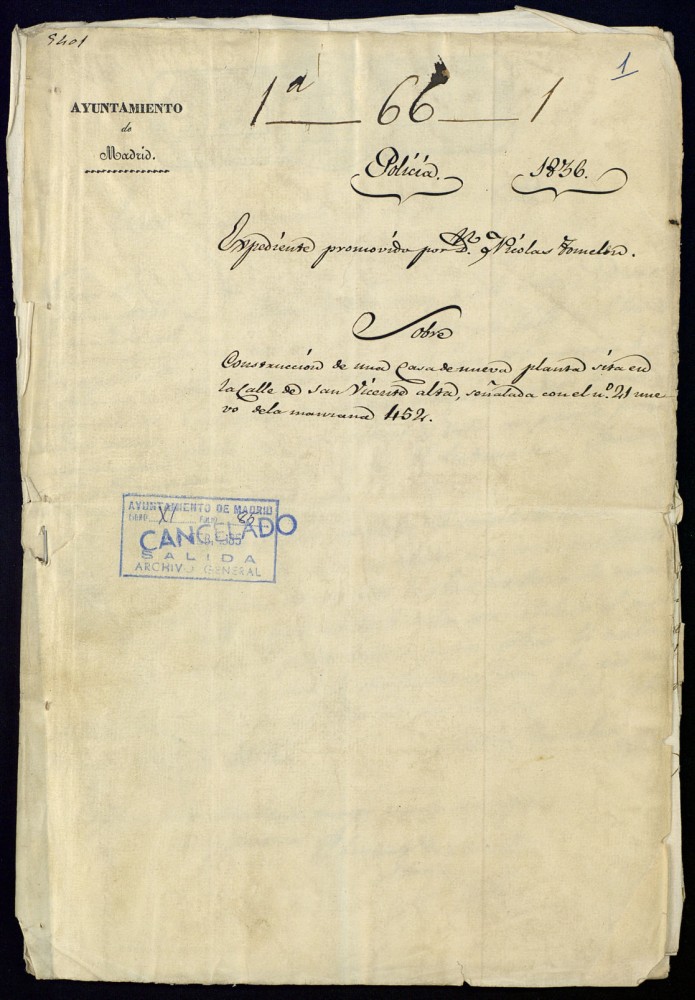 5401
1
AYUNTAMIENTO
de
Madrid.
1ª 66 1
Policía. 1836.
Expediente promovido por D. Nicolas
Sobre
Construccion de una Casa de nueva planta sita en
la Calle de San Vicente alta, señalada con el nº. 21 nue
vo de la manzana 452.
AYUNTAMIENTO DE MADRID
XI 85
CANCELADO
SALIDA
ARCHIVO GENERAL